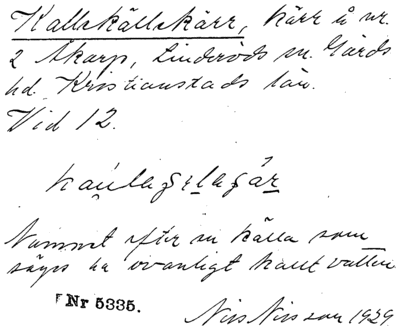 Kallskällskärr, kärr å nr.
2 Åkarp, Linderöds sn. Gärds
hd. Kristianstads län.
Vid 12.
Namnet efter en källa som
säges ha ovanligt kallt vatten
Nr 5335.
Nils Nilsson 1929